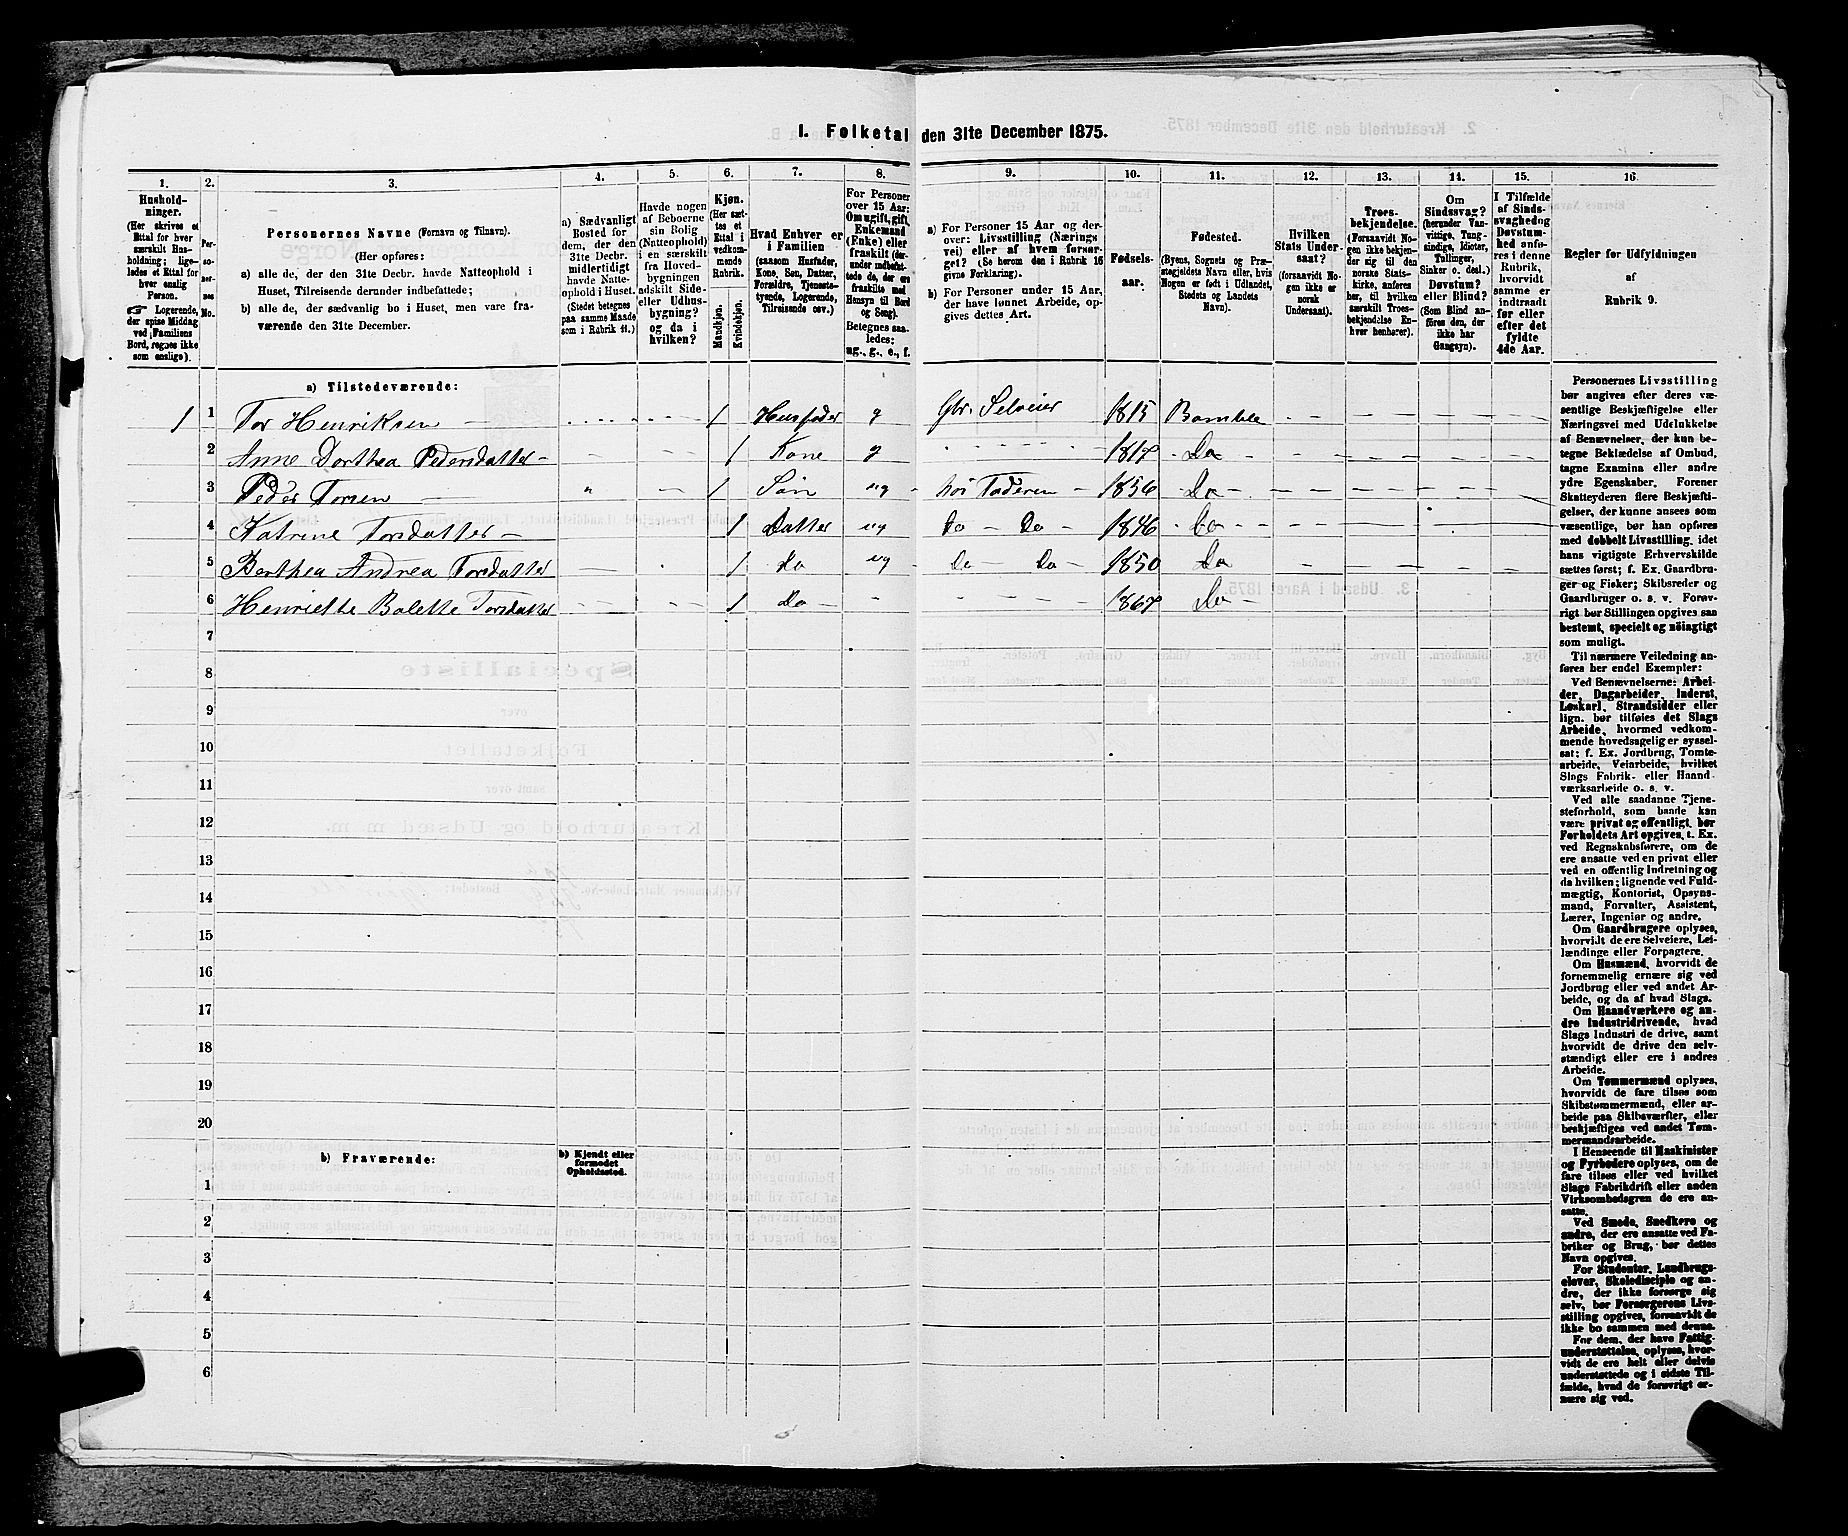 1. Folketal den 31te December 1875.
1. 2. 3. 4. 5. 6. 7. 8. 9. 10. 11. 12. 13. 14. 15. 16.
Hushold-
ninger.
(Her skrives et
Ettal for hver
særskilt Hus-
holdning; lige-
ledes et Ettal for
hver enslig
Person.
☞ Logerende,
der spise Middag
ved Familiens
Bord, regnes ikke
som enslige).
Per-
so-
ner-
nes
No.
Personernes Navne (Fornavn og Tilnavn).
(Her opføres:
a) alle de, der den 31te Decbr. havde Natteophold i
Huset, Tilreisende derunder indbefattede;
b) alle de, der sædvanlig bo i Huset, men vare fra-
værende den 31te December.
a) Sædvanligt
Bosted for
dem, der den
31te Decbr.
midlertidigt
havde Natte-
ophold i Huset.
(Stedet betegnes
paa samme Maade
som i Rubrik 11.)
Havde nogen
af Beboerne
sin Bolig
(Natteophold)
i en særskilt
fra Hoved-
bygningen
adskilt Side-
eller Udhus-
bygning?
og da i
hvilken?
Kjøn.
(Her sæt-
tes et
Ettal i
vedkom-
mende
Rubrik.
Mandkjøn.
Kvindekjøn.
Hvad Enhver er
i Familien
(saasom Husfader,
Kone, Søn, Datter,
Forældre, Tjeneste-
tyende, Logerende,
Tilreisende osv.)
For Personer
over 15 Aar:
Om ugift, gift,
Enkemand
(Enke) eller
fraskilt (der-
under indbefat-
tede de, der ere
fraskilte med
Hensyn til Bord
og Seng).
Betegnes saa-
ledes:
ug., g., e., f.
a) For Personer 15 Aar og der-
over: Livsstilling (Nærings
vei) eller af hvem forsør-
get? (Se herom den i Rubrik 16
givne Forklaring).
b) For Personer under 15 Aar,
der have lønnet Arbeide, op-
gives dettes Art.
Fødsels-
aar.
Fødested.
(Byens, Sognets og Præ-
stegjeldets Navn eller, hvis
Nogen er født i Udlandet,
Stedets og Landets
Navn).
Hvilken
Stats Under-
saat?
(forsaavidt No-
gen ikke er
norsk
Undersaat).
Troes-
bekjendelse.
(Forsaavidt No-
gen ikke bekjen-
der sig til den
norske Stats-
kirke, anføres
her, til hvilken
særskilt Troes-
bekjendelse En-
hver henhører).
Om
Sindssvag?
(herunder Van-
vittige, Tung-
sindige, Idioter,
Tullinger,
Sinker o. desl.)
Døvstum?
eller Blind?
(Som Blind an-
føres den, der
ikke har
Gangsyn).
I Tilfælde
af Sinds-
svaghed og
Døvstum-
hed anfø-
res i denne
Rubrik,
hvorvidt
samme er
indtraadt
før eller
efter det
fyldte
4de Aar.
Regler for Udfyldningen
af
Rubrik 9.
a) Tilstedeværende:
1 1 Tor Henriksen 1 Husfader g Gbr. Selveier 1815 Bamble
2 Anne Dorthea Pedersdatter 1 Kone g 1817 Do
3 Peder Torsen 1 Søn ug hos Faderen 1856 Do
4 Katrine Torsdatter 1 Datter ug Do Do 1846 Do
5 Berthea Andrea Torsdatter 1 Do ug Do Do 1850 Do
6 Henriette Bolette Torsdatter 1 Do 1867 Do
7
8
9
10
11
12
13
14
15
16
17
18
19
20
b) Fraværende:
b) Kjendt eller
formodet
Opholdssted.
1
2
3
4
5
6
Personernes Livsstilling
bør angives efter deres væ-
sentlige Beskjæftigelse eller
Næringsvei med Udelukkelse
af Benævnelser, der kun be-
tegne Beklædelse af Ombud,
tagne Examina eller andre
ydre Egenskaber. Forener
Skatteyderen flere Beskjæfti-
gelser, der kunne ansees som
væsentlige, bør han opføres
med dobbelt Livsstilling, idet
hans vigtigste Erhvervskilde
sættes først; f. Ex. Gaardbru-
ger og Fisker; Skibsreder og
Gaardbruger o. s. v. Forøv-
rigt bør Stillingen opgives saa
bestemt, specielt og nøiagtigt
som muligt.
Til nærmere Veiledning an-
føres her endel Exempler:
Ved Benævnelserne: Arbei-
der, Dagarbeider, Inderst,
Løskarl, Strandsidder eller
lign. bør tilføies det Slags
Arbeide, hvormed vedkom-
mende hovedsagelig er syssel-
sat; f. Ex. Jordbrug, Tomte-
arbeide, Veiarbeide, hvilket
Slags Fabrik- eller Haand-
værksarbeide o. s. v.
Ved alle saadanne Tjene-
steforhold, som baade kan
være privat og offentligt, bør
Forholdets Art opgives, t. Ex.
ved Regnskabsførere, om de
ere ansatte ved en privat eller
ved en offentlig Indretning og
da hvilken; lignende ved Fuld-
mægtig, Kontorist, Opsyns-
mand, Forvalter, Assistent,
Lærer, Ingeniør og andre.
Om Gaardbrugere oplyses,
hvorvidt de ere Selveiere, Lei-
lændinge eller Forpagtere.
Om Husmænd, hvorvidt de
fornemmelig ernære sig ved
Jordbrug eller ved andet Ar-
beide, og da af hvad Slags.
Om Haandværkere og an-
dre Industridrivende, hvad
Slags Industri de drive, samt
hvorvidt de drive den selv-
stændigt eller ere i andres
Arbeide.
Om Tømmermænd oplyses,
hvorvidt de fare tilsøs som
Skibstømmermænd, eller ar-
beide paa Skibsværfter, eller
beskjæftiges ved andet Tøm-
mermandsarbeide.
I Henseende til Maskinister
og Fyrbødere oplyses, om de
fare tilsøs eller ved hvilket
Slags Fabrikdrift eller anden
Virksomhedsgren de ere an-
satte.
Ved Smede, Snedkere og
andre, der ere ansatte ved Fa-
briker og Brug, bør dettes
Navn opgives.
For Studenter, Landbrugs-
elever, Skoledisciple og an-
dre, der ikke forsørge sig
selv, bør Forsørgerens Livs-
stilling opgives, forsaavidt de
ikke bo sammen med denne.
For dem, der have Fattig-
understøttelse, oplyses, hvor-
vidt de ere helt eller delvis
understøttede og i sidste Til-
fælde, hvad de forøvrigt er-
nære sig ved.